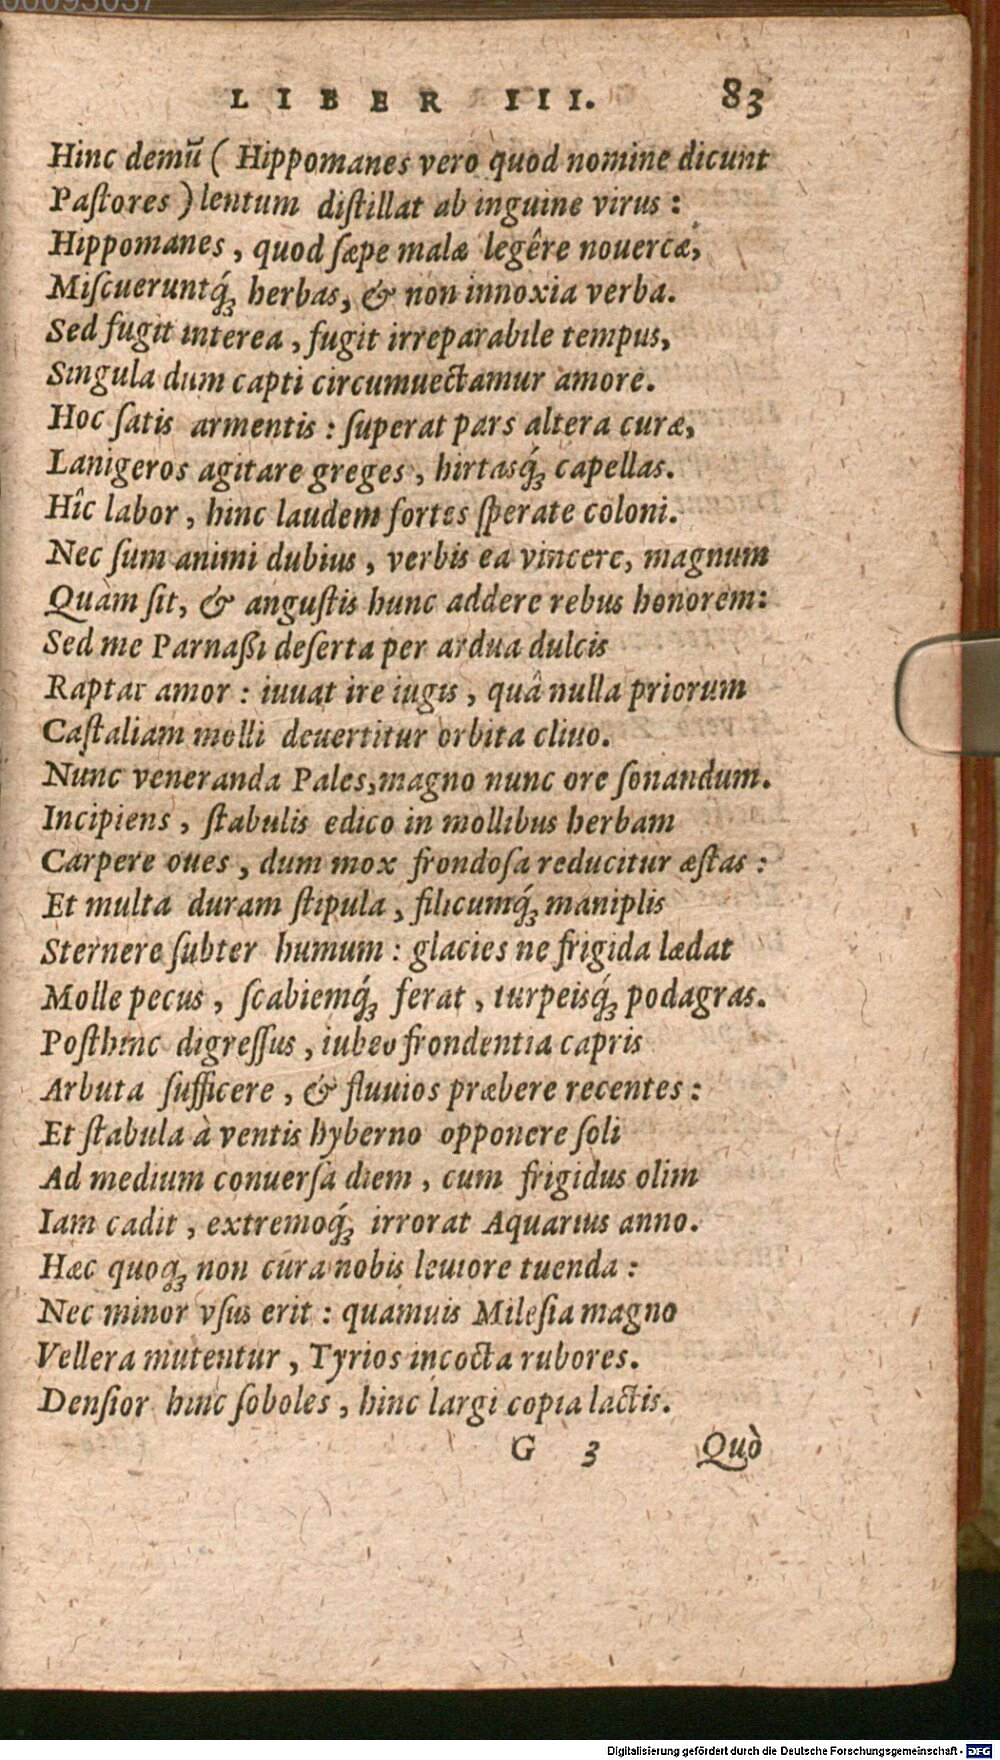 LIBER III. 83
Hinc demũ ( Hippomanes vero quod nomine dicunt
Paſtores ) lentum diſtillat ab inguine virus :
Hippomanes , quod ſæpe malæ legêre nouercæ,
Miſcueruntq́ꝫ herbas, & non innoxia verba.
Sed fugit interea , fugit irreparabile tempus,
Singula dum capti circumuectamur amore.
Hoc ſatis armentis : ſuperat pars altera curæ,
Lanigeros agitare greges , hirtasq́ꝫ capellas.
Hîc labor , hinc laudem fortes ſperate coloni.
Nec ſum animi dubius , verbis ea vincere, magnum
Quàm ſit, & anguſtis hunc addere rebus honorem:
Sed me Parnaßi deſerta per ardua dulcis
Raptat amor : iuuat ire iugis , quâ nulla priorum
Caſtaliam molli deuertitur orbita cliuo.
Nunc veneranda Pales,magno nunc ore ſonandum.
Incipiens , ſtabulis edico in mollibus herbam
Carpere oues , dum mox frondoſa reducitur æſtas :
Et multa duram ſtipula , filicumq́ꝫ maniplis
Sternere ſubter humum : glacies ne frigida lædat
Molle pecus , ſcabiemq́ꝫ ferat , turpeisq́ꝫ podagras.
Poſthinc digreſſus , iubeo frondentia capris
Arbuta ſufficere , & fluuios præbere recentes :
Et ſtabula à ventis hyberno opponere ſoli
Ad medium conuerſa diem , cum frigidus olim
Iam cadit , extremoq́ꝫ irrorat Aquarius anno.
Hæc quoqꝫ non cura nobis leuiore tuenda :
Nec minor vſus erit : quamuis Mileſia magno
Vellera mutentur , Tyrios incocta rubores.
Denſior hinc ſoboles , hinc largi copia lactis.
G 3 Quò
Digitalisierung gefördert durch die Deutsche Forschungsgemeinschaft - DFG